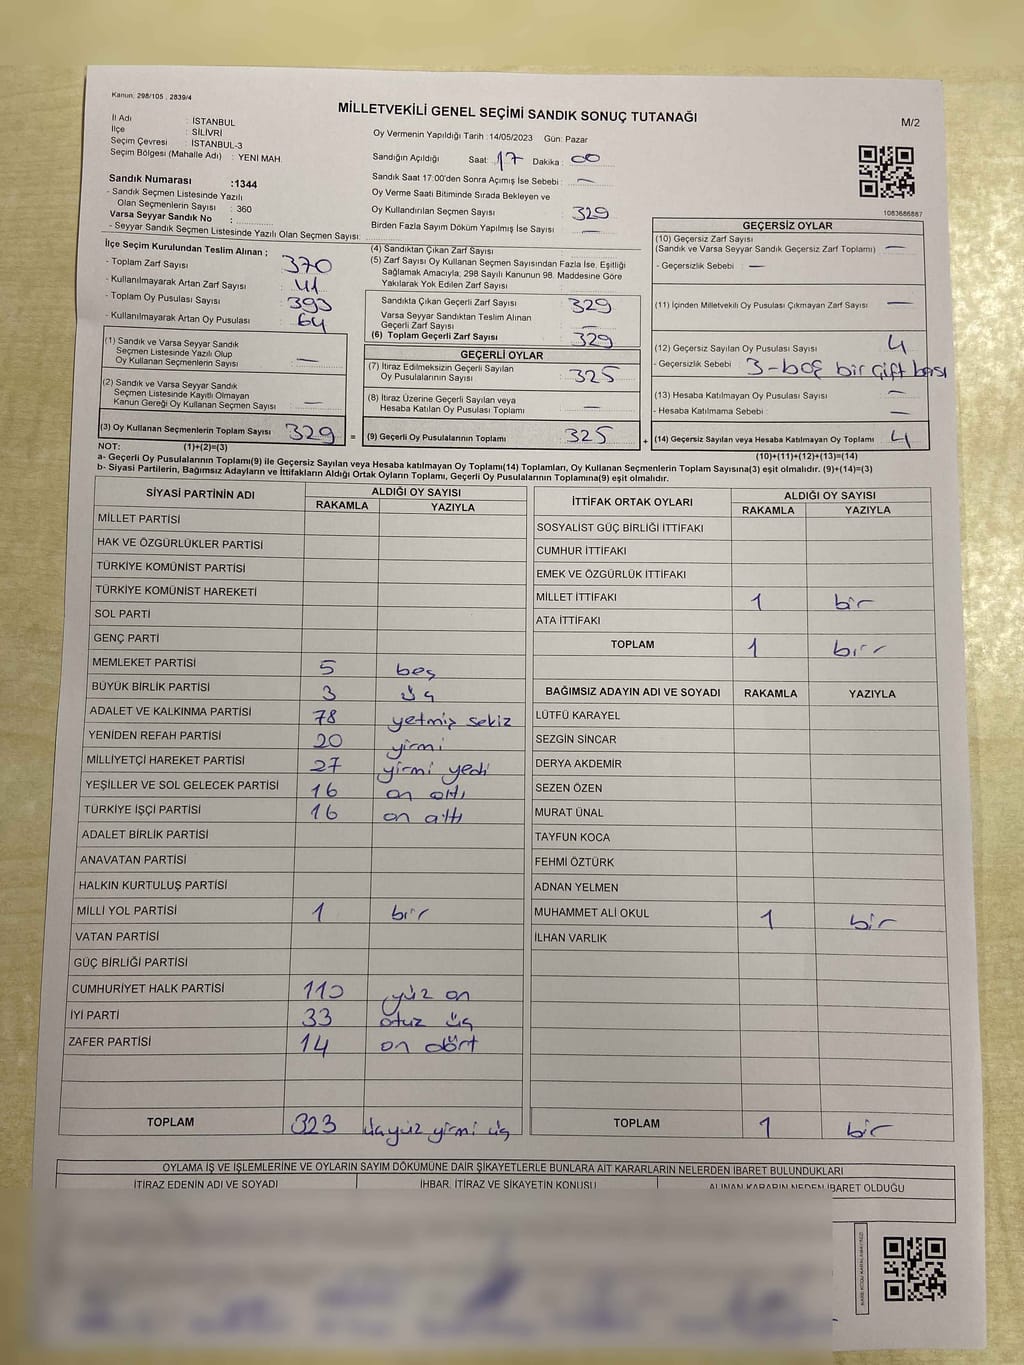 Kanun; 298/105 , 2839/4
MİLLETVEKİLİ GENEL SEÇİMİ SANDIK SONUÇ TUTANAĞI
M/2
İl Adı : İSTANBUL
İlçe : SİLİVRİ
Seçim Çevresi : İSTANBUL-3
Seçim Bölgesi (Mahalle Adı) : YENİ MAH.
Sandık Numarası :1344
- Sandık Seçmen Listesinde Yazılı
Olan Seçmenlerin Sayısı : 360
Varsa Seyyar Sandık No :
- Seyyar Sandık Seçmen Listesinde Yazılı Olan Seçmen Sayısı:
Oy Vermenin Yapıldığı Tarih : 14/05/2023 Gün: Pazar
Sandığın Açıldığı Saat: 17 Dakika : 00
Sandık Saat 17:00'den Sonra Açımış İse Sebebi : —
Oy Verme Saati Bitiminde Sırada Bekleyen ve
Oy Kullandırılan Seçmen Sayısı : 329
Birden Fazla Sayım Döküm Yapılmış İse Sayısı : —
1083686887
İlçe Seçim Kurulundan Teslim Alınan ;
- Toplam Zarf Sayısı : 370
- Kullanılmayarak Artan Zarf Sayısı : 41
- Toplam Oy Pusulası Sayısı : 393
- Kullanılmayarak Artan Oy Pusulası : 64
(1) Sandık ve Varsa Seyyar Sandık
Seçmen Listesinde Yazılı Olup
Oy Kullanan Seçmenlerin Sayısı : —
(2) Sandık ve Varsa Seyyar Sandık
Seçmen Listesinde Kayıtlı Olmayan
Kanun Gereği Oy Kullanan Seçmen Sayısı : —
(3) Oy Kullanan Seçmenlerin Toplam Sayısı 329 =
(4) Sandıktan Çıkan Zarf Sayısı
(5) Zarf Sayısı Oy Kullanan Seçmen Sayısından Fazla İse, Eşitliği
Sağlamak Amacıyla, 298 Sayılı Kanunun 98. Maddesine Göre
Yakılarak Yok Edilen Zarf Sayısı :
Sandıkta Çıkan Geçerli Zarf Sayısı : 329
Varsa Seyyar Sandıktan Teslim Alınan
Geçerli Zarf Sayısı : —
(6) Toplam Geçerli Zarf Sayısı : 329
GEÇERLİ OYLAR
(7) İtiraz Edilmeksizin Geçerli Sayılan
Oy Pusulalarının Sayısı : 325
(8) İtiraz Üzerine Geçerli Sayılan veya
Hesaba Katılan Oy Pusulası Toplamı : —
(9) Geçerli Oy Pusulalarının Toplamı : 325 +
GEÇERSİZ OYLAR
(10) Geçersiz Zarf Sayısı
(Sandık ve Varsa Seyyar Sandık Geçersiz Zarf Toplamı) : —
- Geçersizlik Sebebi : —
(11) İçinden Milletvekili Oy Pusulası Çıkmayan Zarf Sayısı : —
(12) Geçersiz Sayılan Oy Pusulası Sayısı : 4
- Geçersizlik Sebebi : 3-boş bir çift bası
(13) Hesaba Katılmayan Oy Pusulası Sayısı : —
- Hesaba Katılmama Sebebi : —
(14) Geçersiz Sayılan veya Hesaba Katılmayan Oy Toplamı : 4
NOT: (1)+(2)=(3)
(10)+(11)+(12)+(13)=(14)
a- Geçerli Oy Pusulalarının Toplamı(9) ile Geçersiz Sayılan veya Hesaba katılmayan Oy Toplamı(14) Toplamları, Oy Kullanan Seçmenlerin Toplam Sayısına(3) eşit olmalıdır. (9)+(14)=(3)
b- Siyasi Partilerin, Bağımsız Adayların ve İttifakların Aldığı Ortak Oyların Toplamı, Geçerli Oy Pusulalarının Toplamına(9) eşit olmalıdır.
SİYASİ PARTİNİN ADI ALDIĞI OY SAYISI
RAKAMLA YAZIYLA
MİLLET PARTİSİ
HAK VE ÖZGÜRLÜKLER PARTİSİ
TÜRKİYE KOMÜNİST PARTİSİ
TÜRKİYE KOMÜNİST HAREKETİ
SOL PARTİ
GENÇ PARTİ
MEMLEKET PARTİSİ 5 beş
BÜYÜK BİRLİK PARTİSİ 3 üç
ADALET VE KALKINMA PARTİSİ 78 yetmiş sekiz
YENİDEN REFAH PARTİSİ 20 yirmi
MİLLİYETÇİ HAREKET PARTİSİ 27 yirmi yedi
YEŞİLLER VE SOL GELECEK PARTİSİ 16 on altı
TÜRKİYE İŞÇİ PARTİSİ 16 on altı
ADALET BİRLİK PARTİSİ
ANAVATAN PARTİSİ
HALKIN KURTULUŞ PARTİSİ
MİLLİ YOL PARTİSİ 1 bir
VATAN PARTİSİ
GÜÇ BİRLİĞİ PARTİSİ
CUMHURİYET HALK PARTİSİ 110 yüz on
İYİ PARTİ 33 otuz üç
ZAFER PARTİSİ 14 on dört
TOPLAM 323 üçyüz yirmi üç
İTTİFAK ORTAK OYLARI ALDIĞI OY SAYISI
RAKAMLA YAZIYLA
SOSYALİST GÜÇ BİRLİĞİ İTTİFAKI
CUMHUR İTTİFAKI
EMEK VE ÖZGÜRLÜK İTTİFAKI
MİLLET İTTİFAKI 1 bir
ATA İTTİFAKI
TOPLAM 1 bir
BAĞIMSIZ ADAYIN ADI VE SOYADI RAKAMLA YAZIYLA
LÜTFÜ KARAYEL
SEZGİN SİNCAR
DERYA AKDEMİR
SEZEN ÖZEN
MURAT ÜNAL
TAYFUN KOCA
FEHMİ ÖZTÜRK
ADNAN YELMEN
MUHAMMET ALİ OKUL 1 bir
İLHAN VARLIK
TOPLAM 1 bir
OYLAMA İŞ VE İŞLEMLERİNE VE OYLARIN SAYIM DÖKÜMÜNE DAİR ŞİKAYETLERLE BUNLARA AİT KARARLARIN NELERDEN İBARET BULUNDUKLARI
İTİRAZ EDENİN ADI VE SOYADI İHBAR, İTİRAZ VE ŞİKAYETİN KONUSU ALINAN KARARIN NEDEN İBARET OLDUĞU